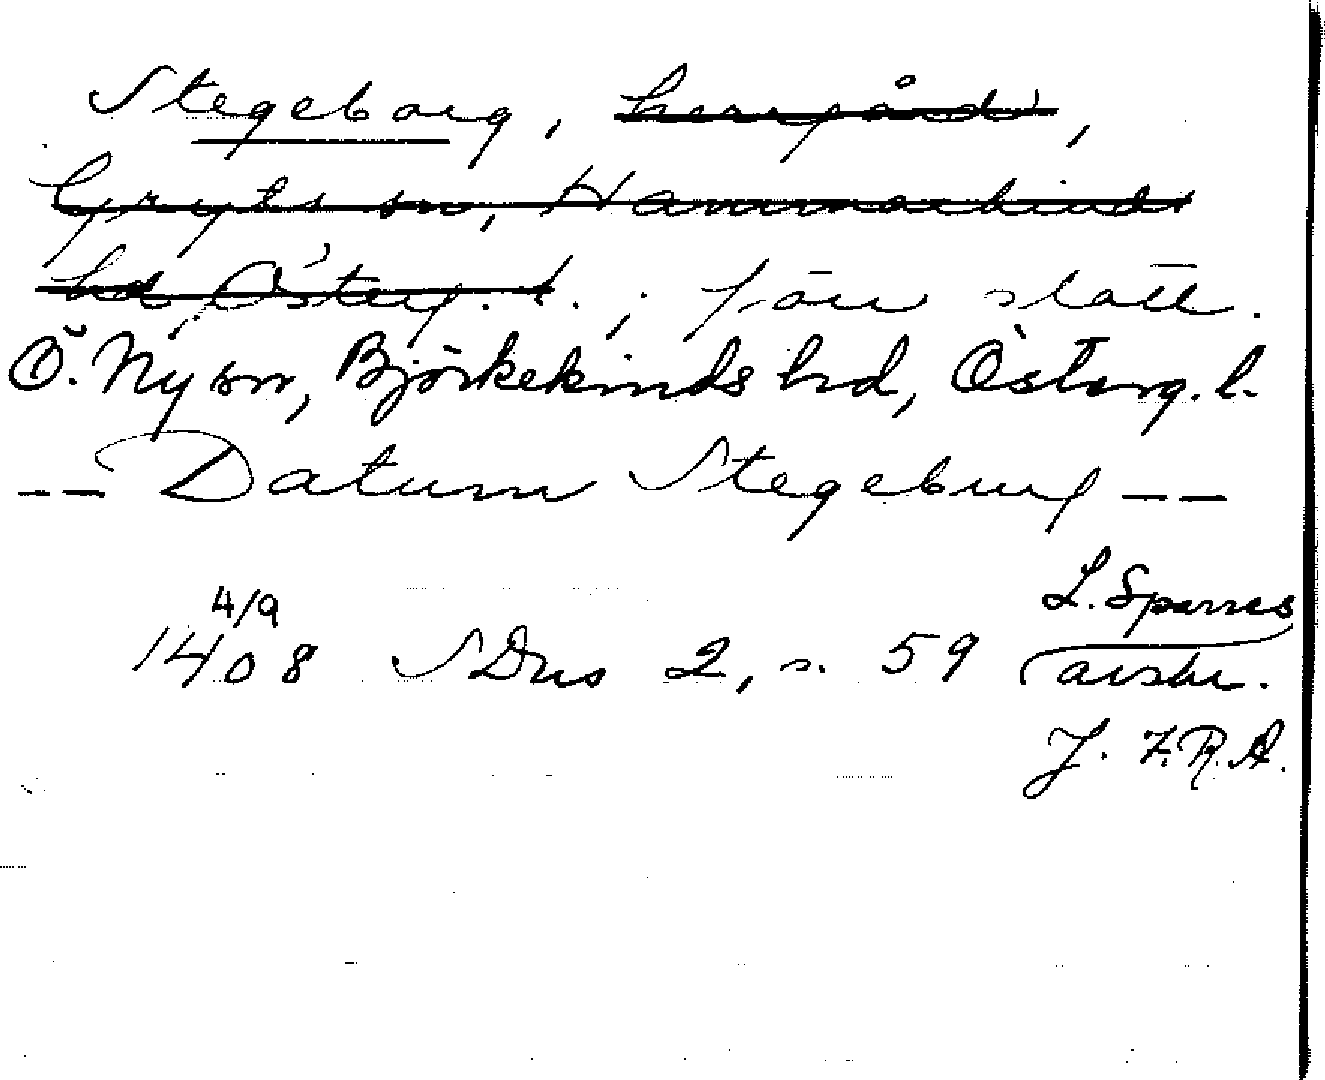 Stegeborg, herrgård,
Gryts sn, Hammarkinds
hd, Österg. l.; förr slott.
Ö. Ny sn, Björkekinds hd, Österg. l.
-- Datum Stegeburg --
4/9
1408 SDns 2, s. 59
L. Sparres
avskr.
J. F.R.A.